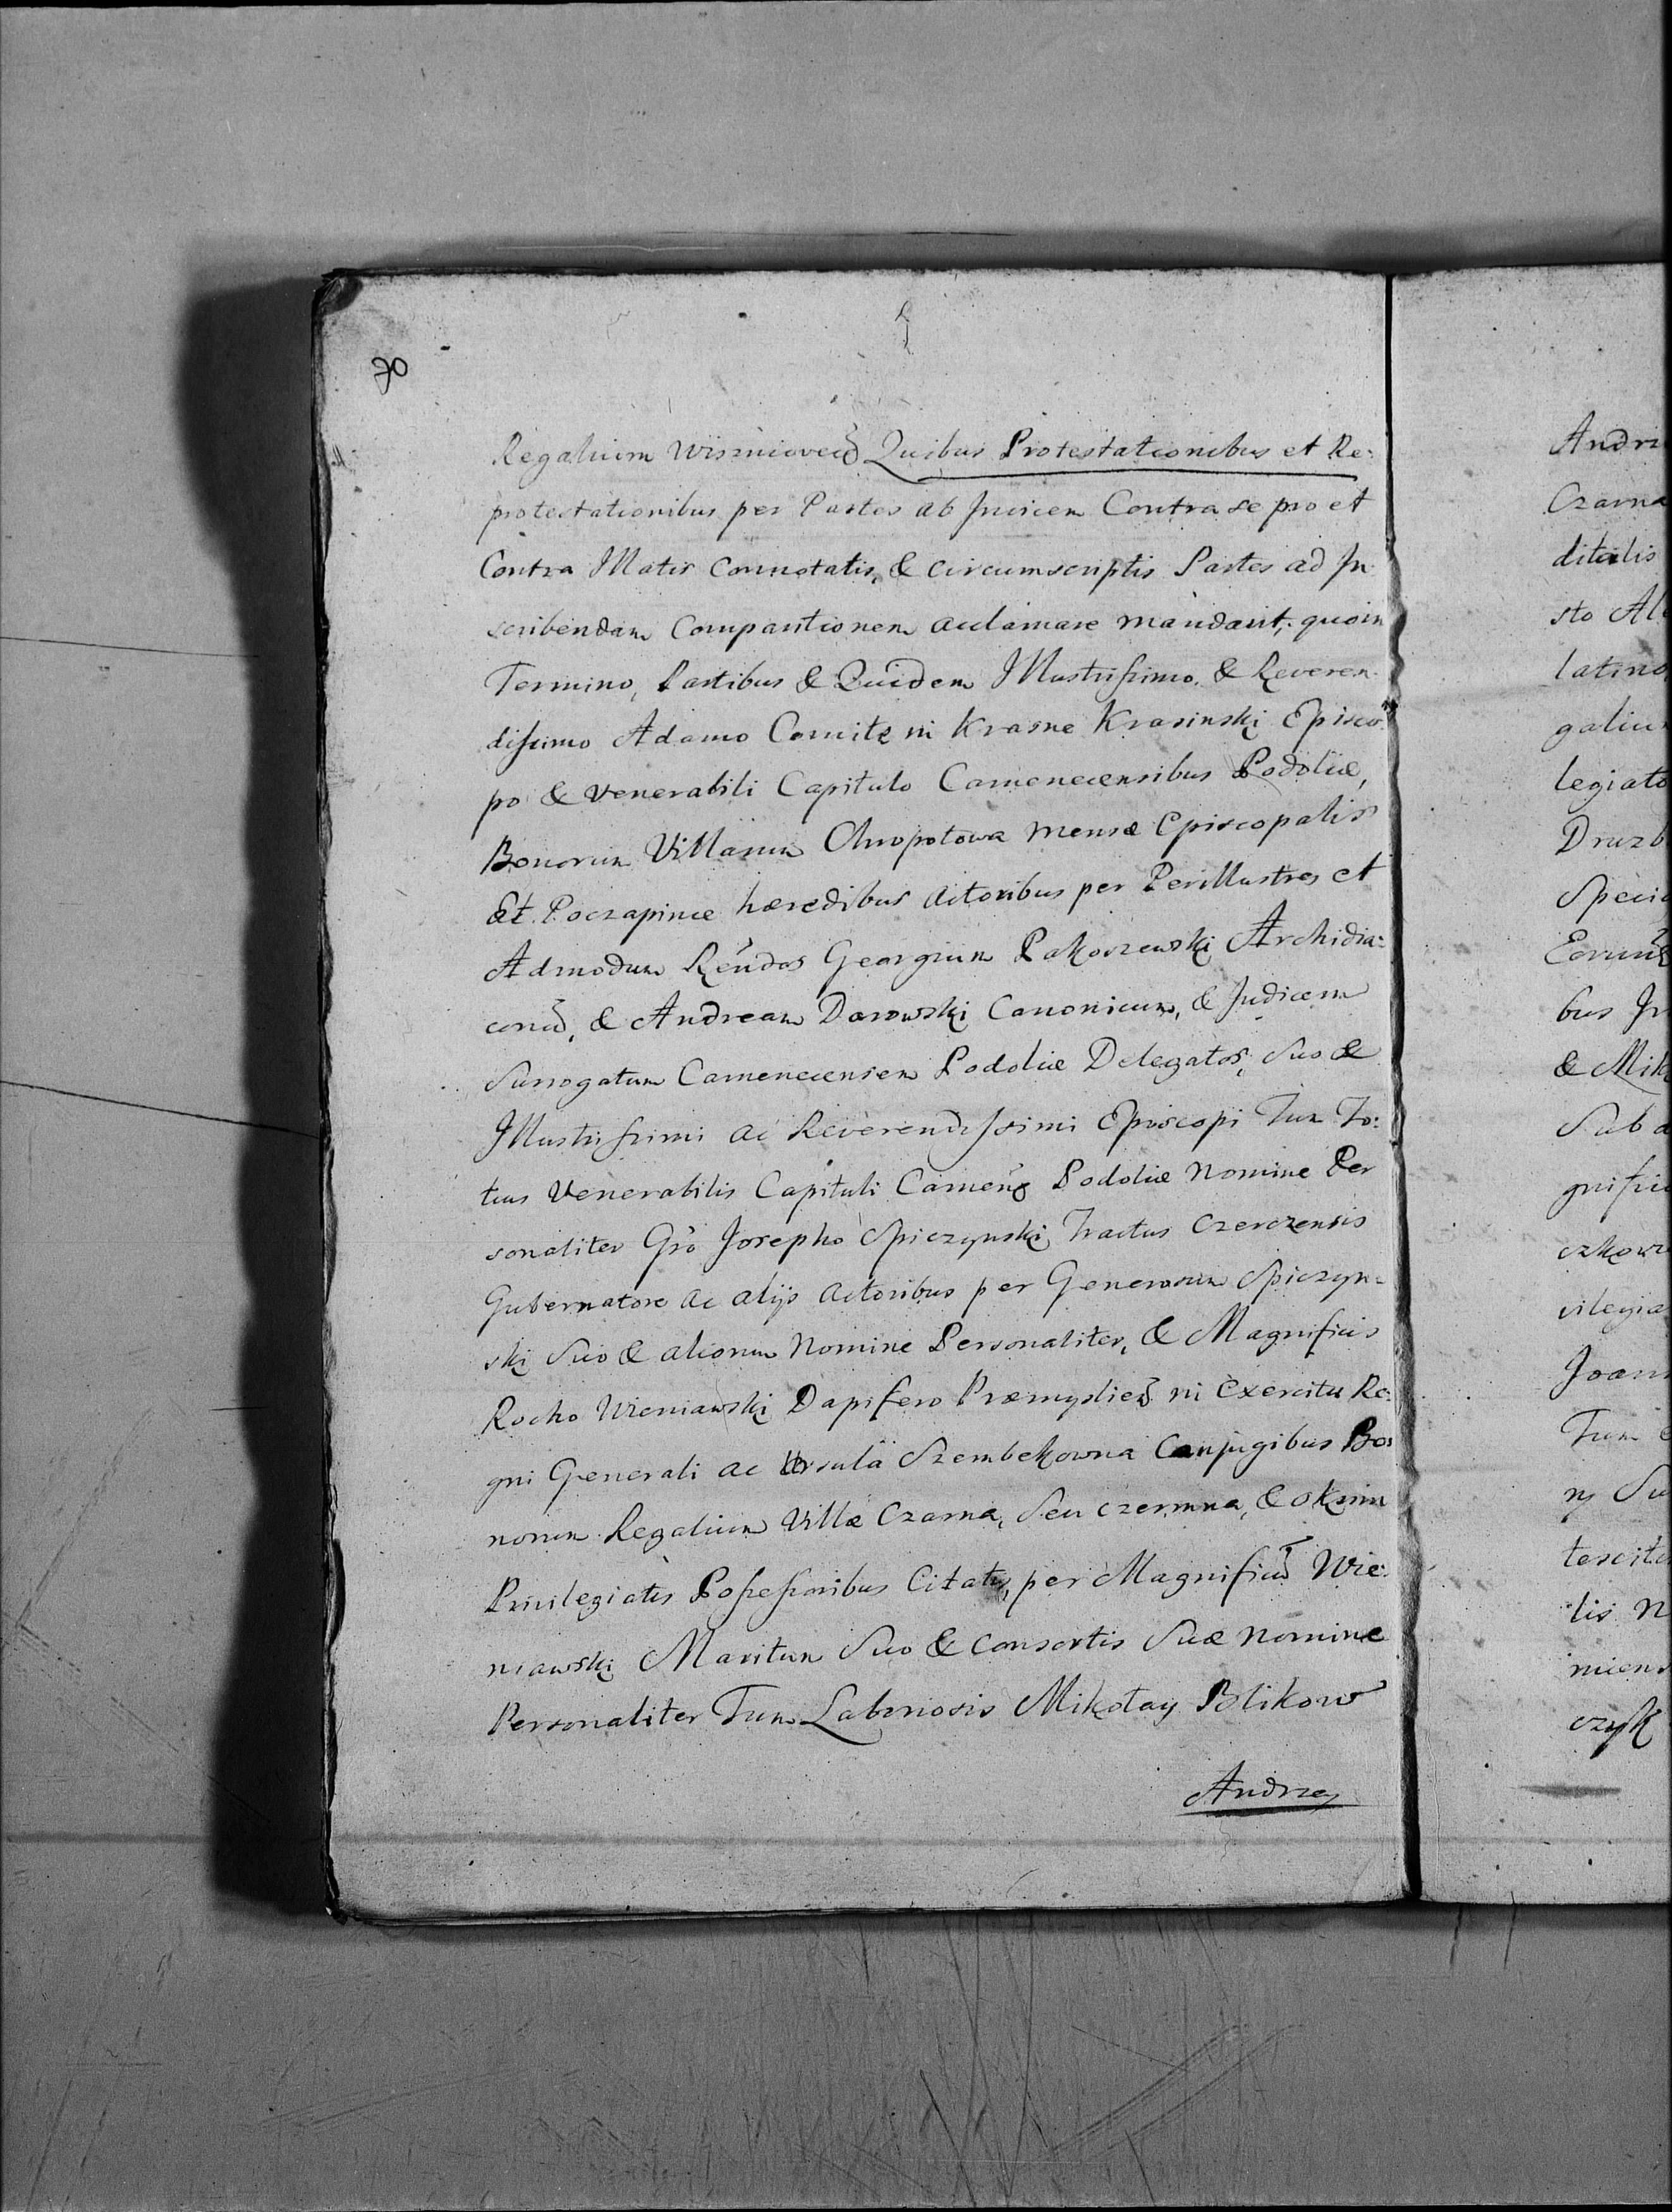 70
Regalium Wiszniovec̃ Quibus Protestationibus et Re:
protestationibus per Partes ab Invicem Contra se pro et
Contra Illatis Connotatis, & circumscriptis Partes ad In
scribendam Comparitionem acclamare mandavit, quo in
Termino, Partibus & Quidem Illustrissimo & Reveren
dissimo Adamo Comite in Krasne Krasinski Episco
po & Venerabili Capitulo Camenecensibus Podoliæ,
Bonorum Villarum Chropotowa mensæ Episcopalis
Et Poczapince hæredibus Actoribus per Perillustres et
Admodum Rẽndos Georgium Pakoszewski Archidia:
conũ, & Andream Darowski Canonicum, & Judicem
Surrogatum Camenecensem Podoliæ Delegatos, Suo &
Illustrissimi ac Reverendissimi Episcopi Tum To:
tius Venerabilis Capituli Camenẽ Podoliæ Nomine Per
sonaliter Gso Josepho Spiczynski Tractus Czerczensis
Gubernatore ac alijs Actoribus per Generosum Spiczyn=
ski Suo & aliorum Nomine Personaliter, & Magnificis
Rocho Wieniawski Dapifero Præmyslien̄ in Exercitu Re:
gni Generali ac Ursula Szembekowna Conjugibus Bo
norum Regalium Villæ Czarna, Seu Czermna, &
Privilegiatis Possessoribus Citatis, per Magnificũ Wie:
niawski Maritum Suo & Consortis Suæ Nomine
Personaliter Tum Laboriosis Mikołay Blikow
Andrzey
Andrz
Czarna
ditalis
sto Al
latino
galiu
legiato
Druzb
Specia
Eorum
bus In
& Mik
Sub
gnifici
czkow
vilegia
Joann
Tum
ny Su
lis N
miens
czyk